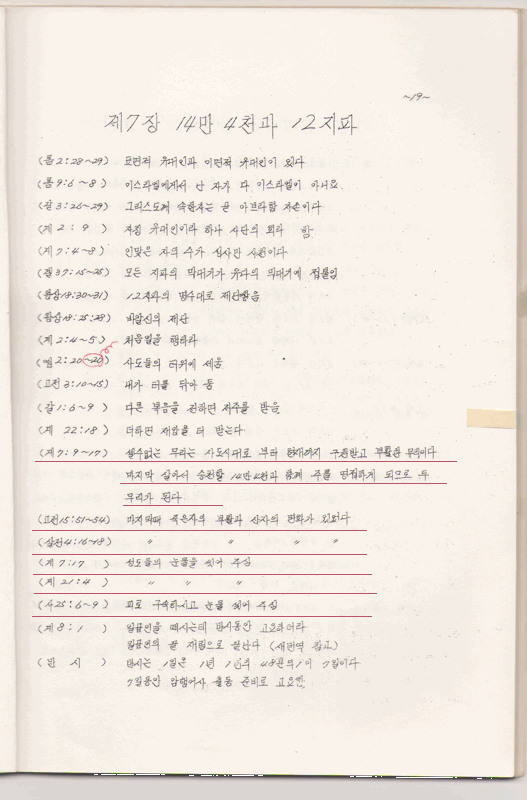 ~19~
제7장 14만 4천과 12지파
(롬 2:28~29) 표면적 유대인과 이면적 유대인이 있다
(롬 9:6~8) 이스라엘에게서 난 자가 다 이스라엘이 아니요
(갈 3:26~29) 그리스도께 속한자는 곧 아브라함 자손이다
(계 2:9) 자칭 유대인이라 하나 사단의 회라 함
(계 7:4~8) 인맞은 자의 수가 십사만 사천이다
(겔 37:15~25) 모든 지파의 막대기가 유다의 막대기에 접붙임
(왕상 18:30~31) 12지파의 명수대로 제단쌓음
(왕상 18:25:28) 바알신의 제단
(계 2:4~5) 처음일을 행하라
(엡 2:20~20) 사도들의 터위에 세움
(고전 3:10~15) 내가 터를 닦아 둠
(갈 1:6~9) 다른 복음을 전하면 저주를 받음
(계 22:18) 더하면 재앙을 더 받는다
(계 7:9~17) 셀수없는 무리는 사도시대로 부터 현재까지 구원받고 부활한 무리이다
마지막 살아서 승천할 14만4천과 함께 주를 영접하게 되므로 두
무리가 된다
(고전 15:51~54) 마지막때 죽은자의 부활과 산자의 변화가 있겠다
(살전 4:16~18) 〃 〃 〃 〃
(계 7:17) 성도들의 눈물을 씻어 주심
(계 21:4) 〃 〃 〃
(사 25:6~9) 피로 구속하시고 눈물 씻어 주심
(계 8:1) 일곱인을 떼시는데 반시동안 고요하더라
일곱인의 끝 재림으로 끝난다 (새번역 참고)
(반시) 반시는 1일은 1년 1일의 48분의1이 7일이다
7일동안 출동 준비로 고요함